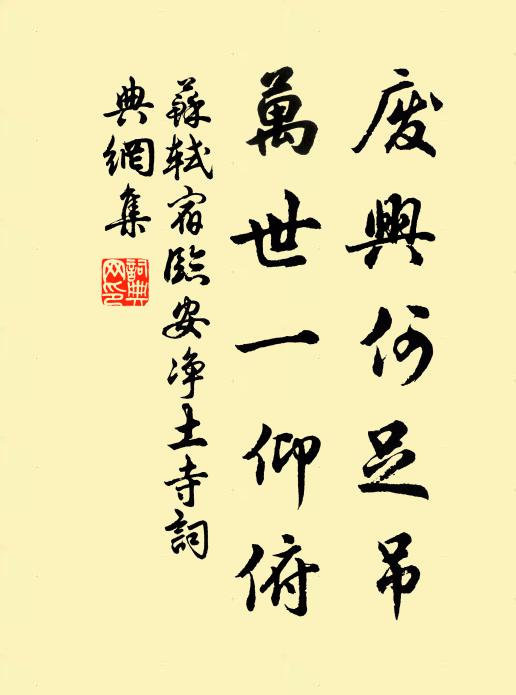 廢興何足吊
萬世一仰俯
蘇軾宿臨安净土寺詞
典網集
詞典網印